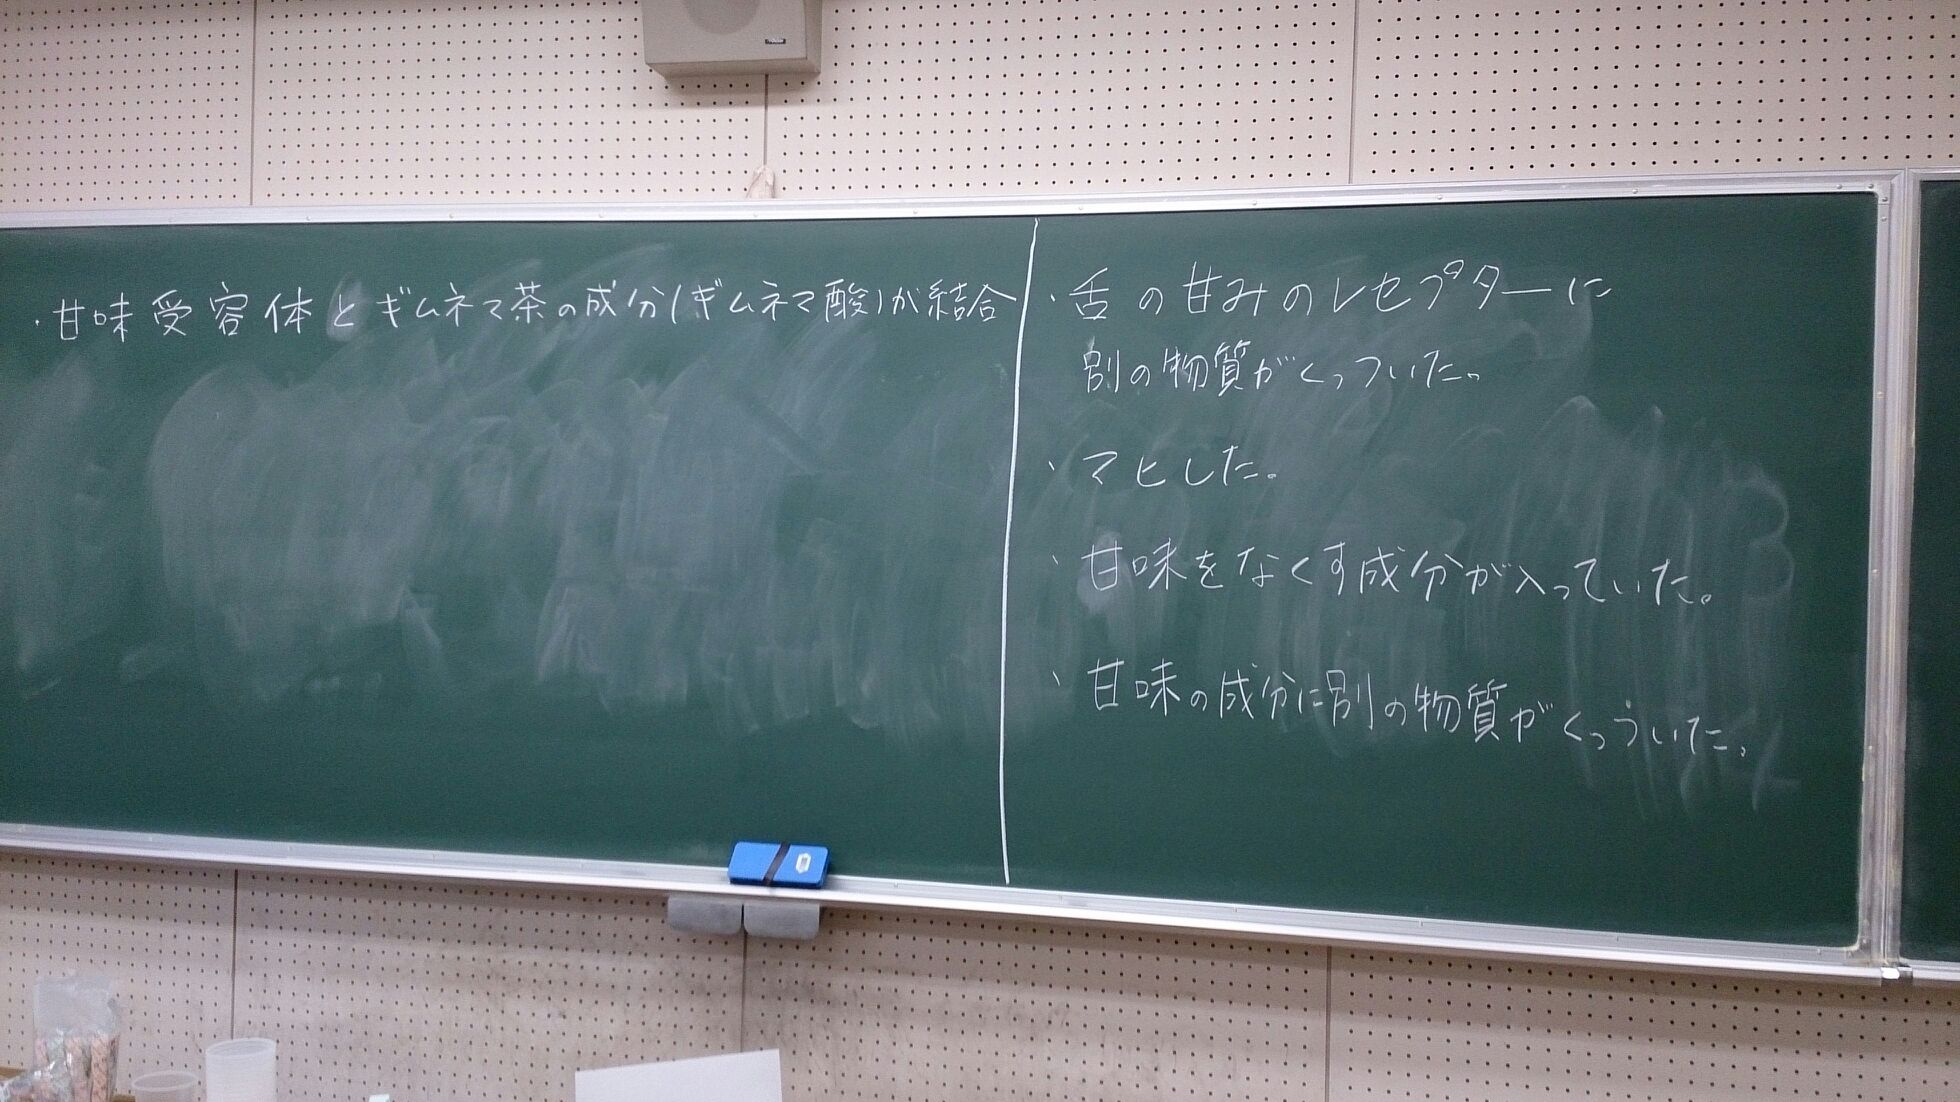 ・甘味受容体とギムネマ茶の成分(ギムネマ酸)が結合
・舌の甘みのレセプターに
別の物質がくっついた。
・マヒした。
・甘味をなくす成分が入っていた。
・甘味の成分に別の物質がくっついた。